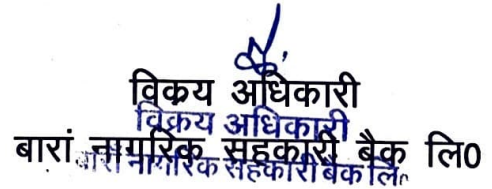 विक्रय अधिकारी
विक्रय अधिकारी
बारां नागरिक सहकारी बैंक लि0
बारां नागरिक सहकारी बैंक लि०